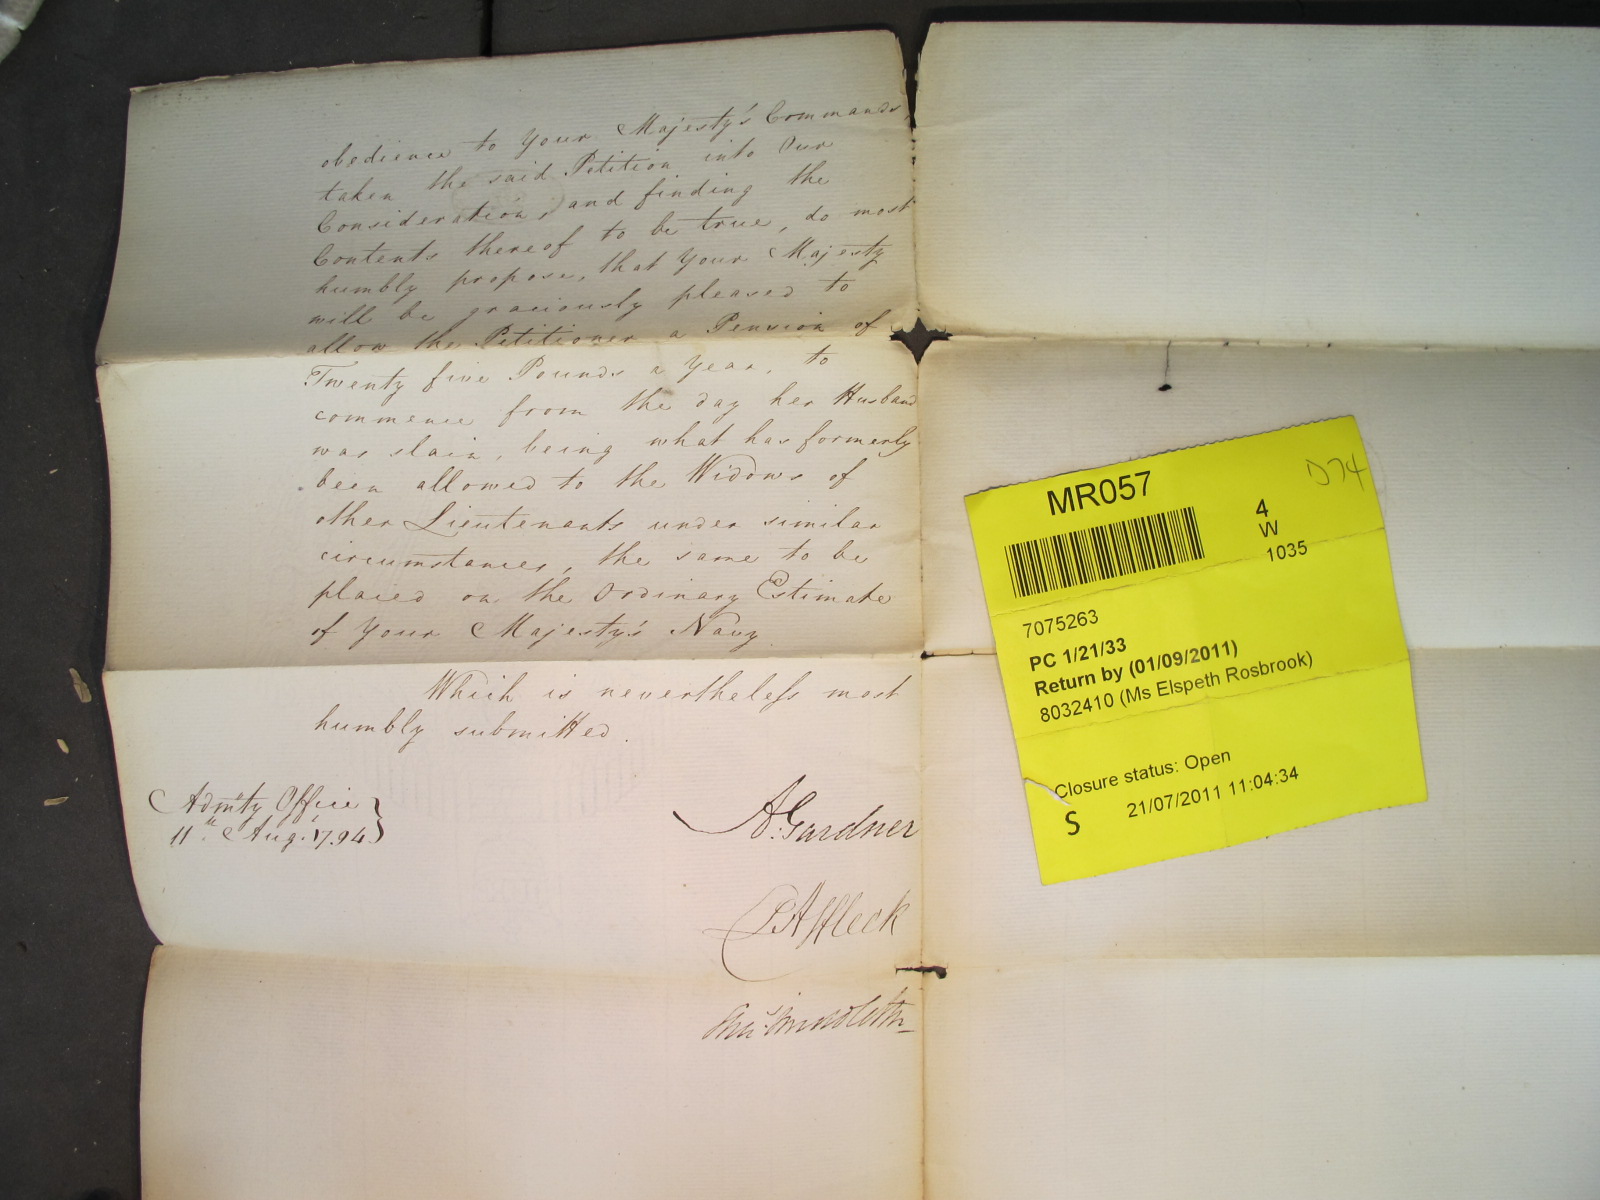 obedience to Your Majesty's Commands,
taken the said Petition into Our
Consideration, and finding the
Contents thereof to be true, do most
humbly propose, that Your Majesty
will be graciously pleased to
allow the Petitioner a Pension of
Twenty five Pounds a Year, to
commence from the day her Husband
was slain, being what has formerly
been allowed to the Widows of
other Lieutenants under similar
circumstances, the same to be
placed on the Ordinary Estimate
of Your Majesty's Navy.
Which is nevertheless most
humbly submitted.
Admty Office
11th Aug. 1794
A: Gardner
P Affleck
MR057
D74
4
W
1035
7075263
PC 1/21/33
Return by (01/09/2011)
8032410 (Ms Elspeth Rosbrook)
Closure status: Open
S
21/07/2011 11:04:34